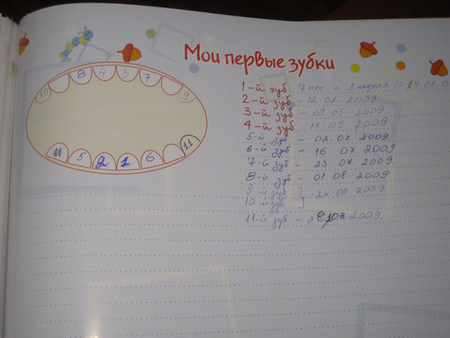 Мои первые зубки
10 8 4 3 7 9
11 5 2 1 6 11
1-й зуб 7 мес и 1 неделя
2-й зуб - 12.02.2009
3-й зуб - 09.05 2009
4-й зуб - 11.05 2009
5-й зуб - 02.07 2009
6-й зуб - 16 07 2009
7-й зуб - 23 07 2009
8-й зуб - 01 08 2009
9-й зуб
10-й зуб 2009
11-й зуб - 2009